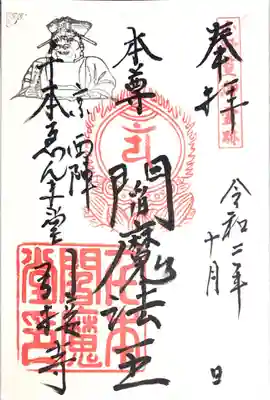 奉拝
令和二年十月 日
本尊
閻魔法王
京 西陣
千本ゑんま堂 引接寺